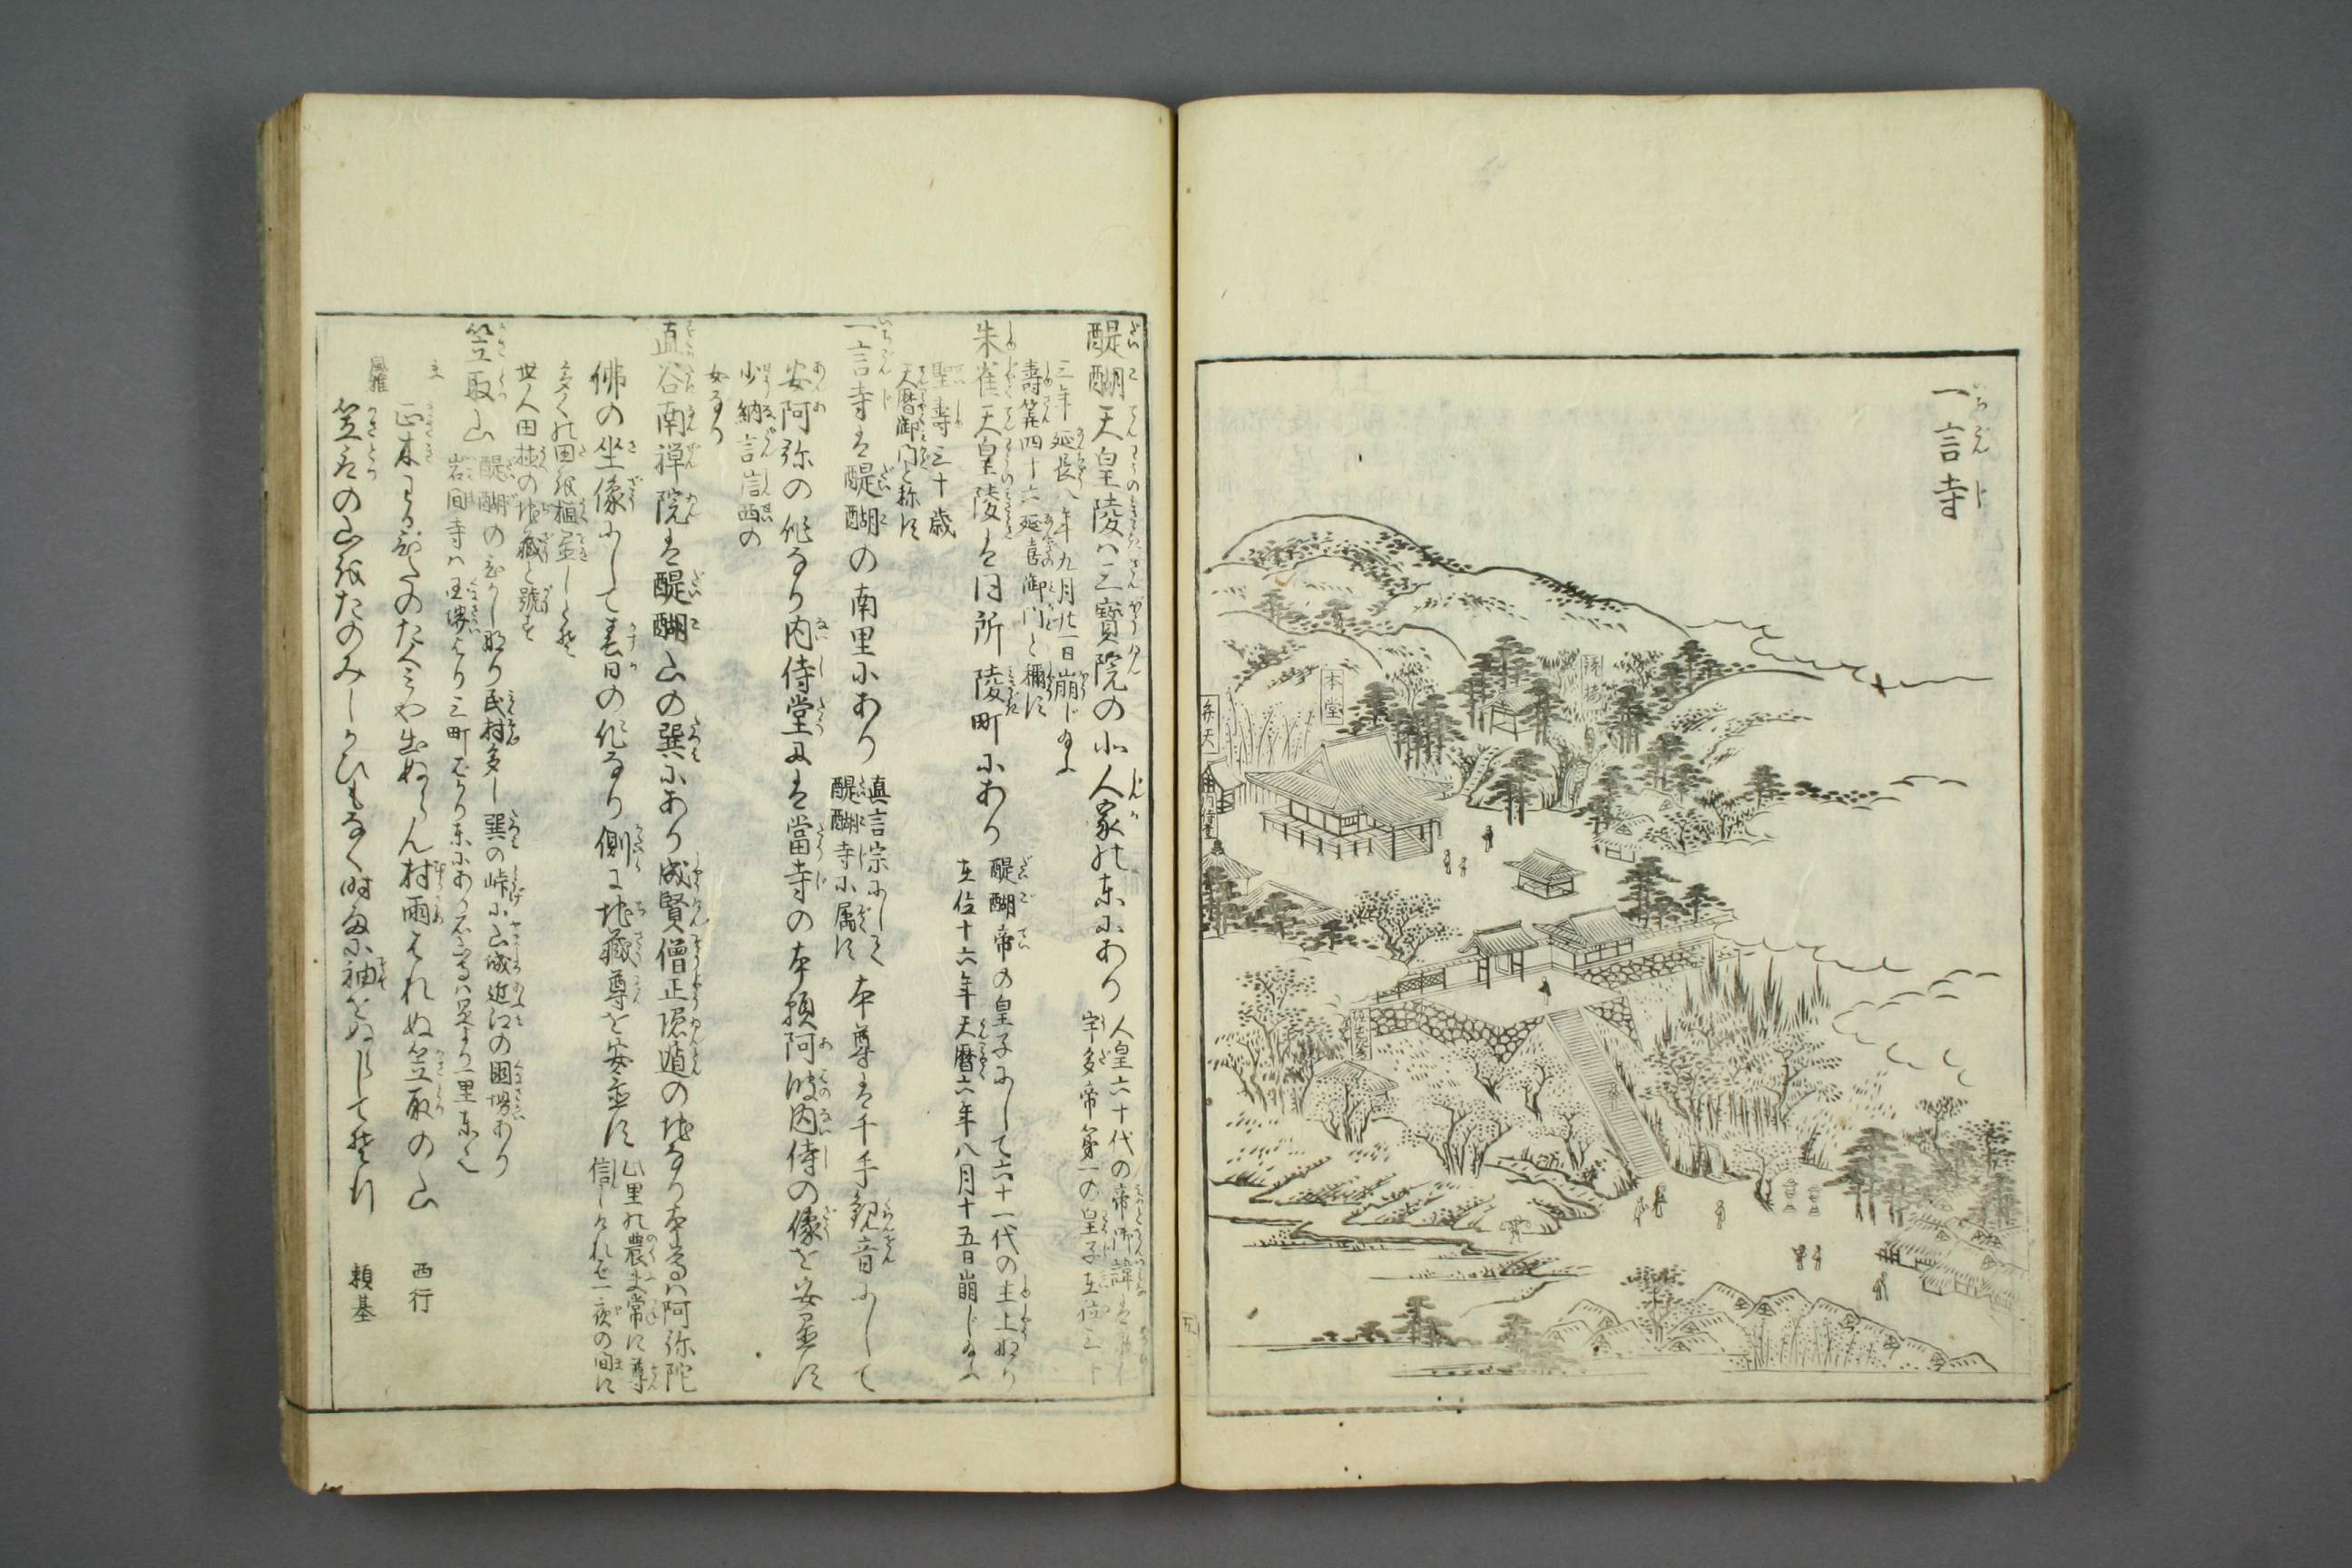 一言寺
いちごんじ
弁天
本堂
内侍堂
醍醐天皇陵ハ三寳院の北人家の東にあり
人皇六十代の帝御諱ハ
宇多帝第一の皇子在位三十
三年延長八年九月廿九日崩じ給ふ
壽筭四十六延喜御門と稱す
朱雀天皇陵ハ同所陵町にあり
醍醐帝の皇子にして六十一代の主上なり
在位十六年天暦六年八月十五日崩じ給ふ
聖壽三十歳
天暦御門と称す
一言寺ハ醍醐の南里にあり
真言宗にして
醍醐寺に属す
本尊ハ千手観音にして
安阿弥の作なり内侍堂ハ當寺の本願阿波内侍の像を安置す
少納言信西の
女なり
直谷南禅院ハ醍醐山の巽にあり成賢僧正隠遁の地なり本尊ハ阿弥陀
佛の坐像にして春日の作なり側に地蔵尊を安置す
此里の農夫常に尊
信しけれバ一夜の間に
多くの田を植置しとぞ
世人田植の地蔵と號す
笠取山
醍醐の東にあり民村多し巽の峠に山城近江の國堺あり
岩間寺ハ国堺より三町ばかり東にあり石山寺ハ是より一里東也
正木わる飛騨のたくミや出ぬらん村雨はれぬ笠取の山
西行
風雅
笠取の山をたのみしかひもなく時雨に袖をぬらしてぞ行
頼基